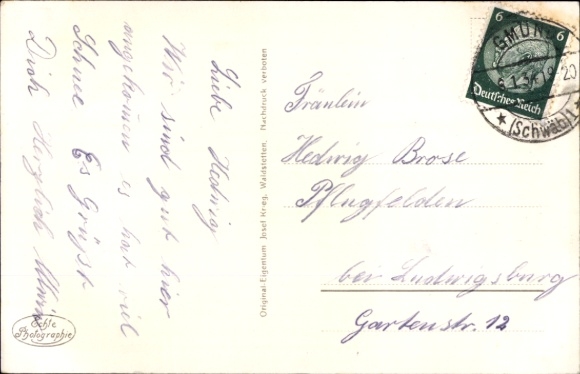 Liebe Hedwig
Wir sind gut hier
angekommen es hat viel
Schnee Es Grüßt
Dich Herzlich
Echte
Photographie
Original-Eigentum Josef Krieg, Waldstetten. Nachdruck verboten
Fräulein
Hedwig Brose
Pflugfelden
bei Ludwigsburg
Gartenstr. 12
6 6
Deutsches Reich
GMÜND
(Schwäb)1